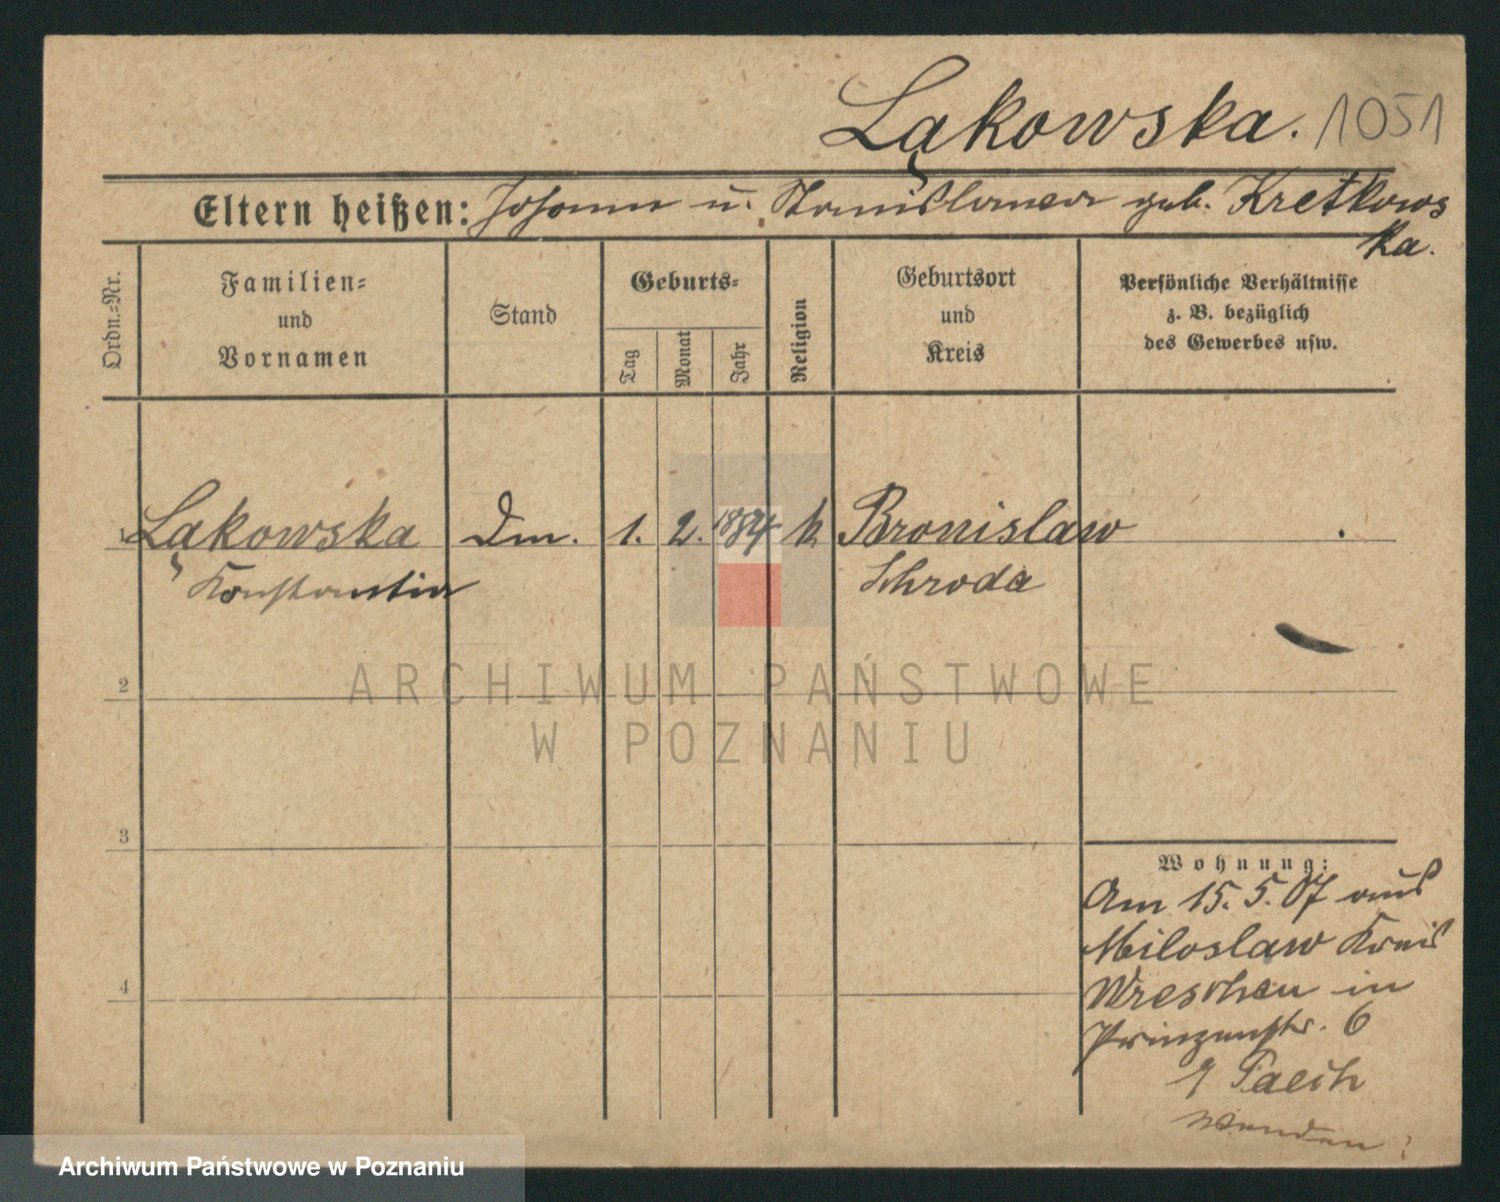 Ląkowska. 1051
Eltern heißen: Johann u. Stanislawa geb. Kretkows
ka.
Ordn.=Nr.
Familien=
und
Vornamen
Stand
Geburts=
Tag
Monat
Jahr
Religion
Geburtsort
und
Kreis
Persönliche Verhältnisse
z. B. bezüglich
des Gewerbes usw.
1 Ląkowska Dm. 1. 2. 1884 k. Bronislaw
Konstantia Schroda
2
3
4
Wohnung:
Am 15. 5. 07 aus
Miloslaw Kreis
Wreschen in
Prinzenstr. 6
Paech
wenden!
ARCHIWUM PAŃSTWOWE
W POZNANIU
Archiwum Państwowe w Poznaniu